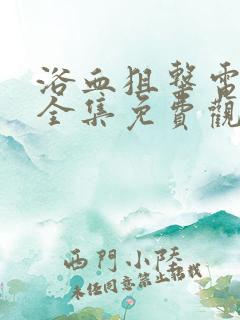 浴血狙擊電
全集免費觀
西門小陸
未經同意禁止轉載